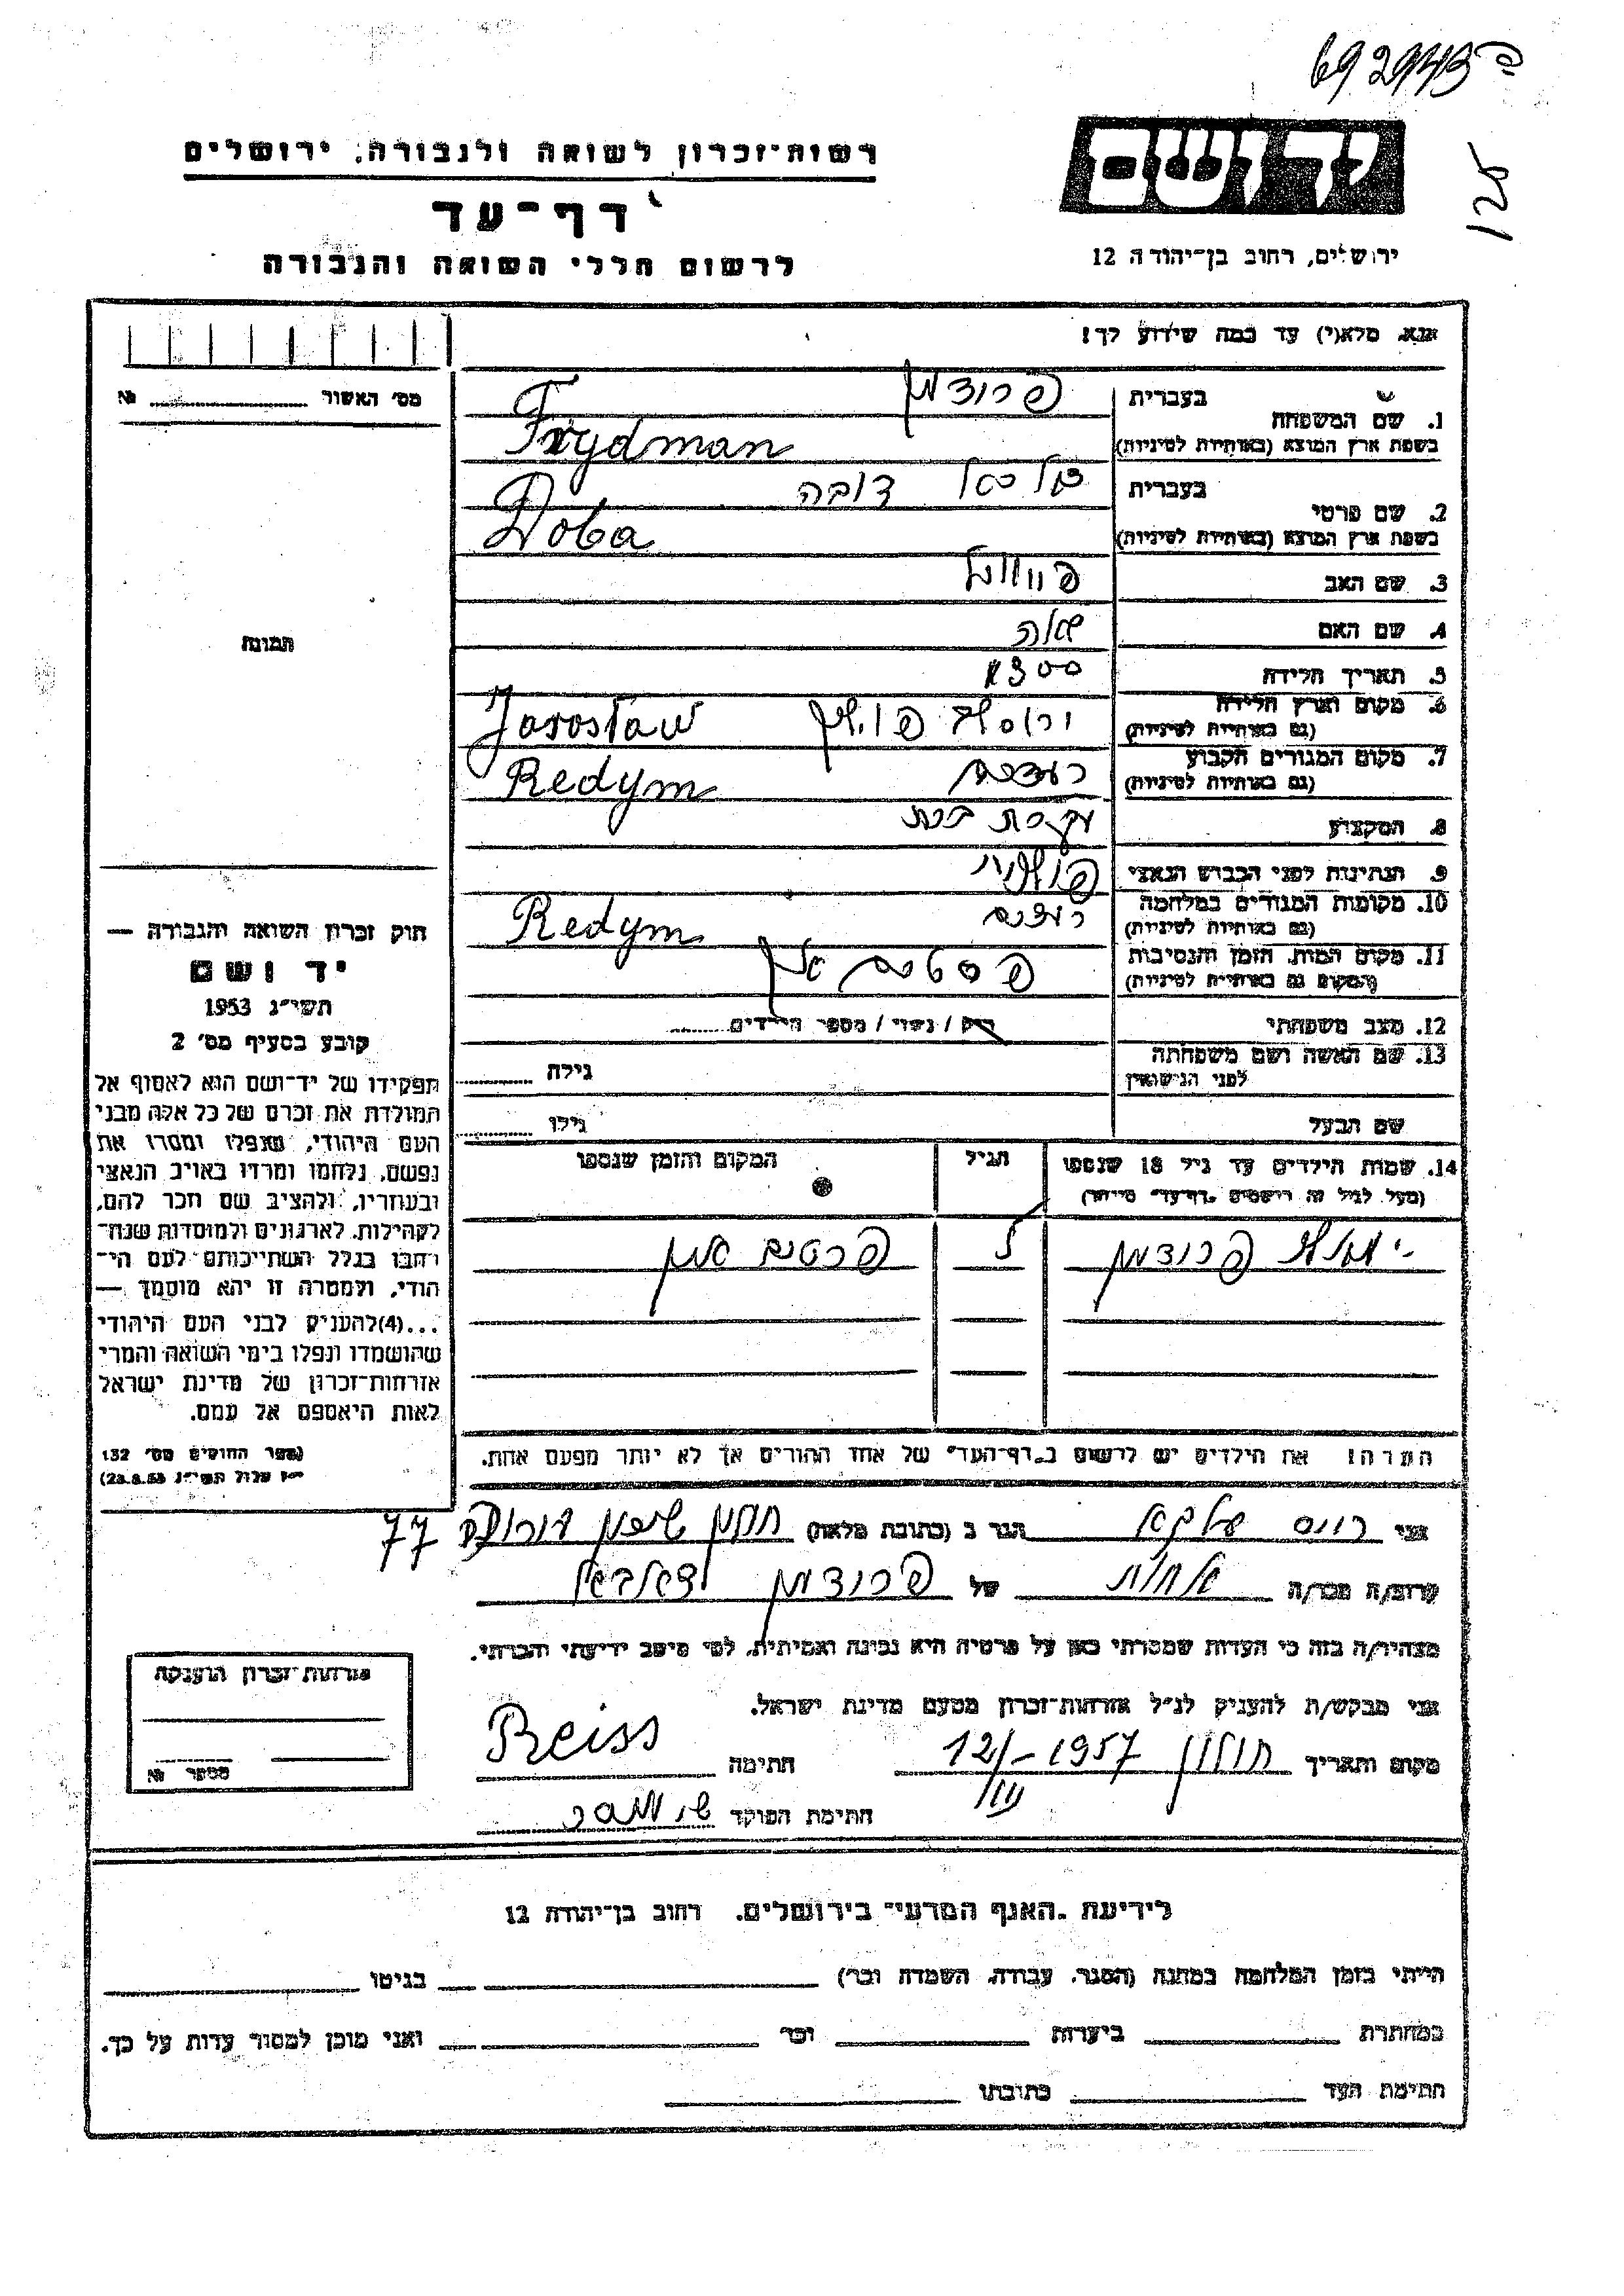 692943 פ
125
יד ושם
ירושלים, רחוב בן־יהודה 12
רשות־זכרון לשואה ולגבורה, ירושלים
דף־עד
לרשום חללי השואה והגבורה
אנא, מלא(י) עד כמה שידוע לך!
מס' האשור № 
1. שם המשפחה
בעברית
פרידמן
בשפת ארץ המוצא (באותיות לטיניות)
Frydman
2. שם פרטי
בעברית
דובה
בשפת ארץ המוצא (באותיות לטיניות)
Doba
3. שם האב
4. שם האם
5. תאריך הלידה
6. מקום וארץ הלידה
(גם באותיות לטיניות)
Jarosław
7. מקום המגורים הקבוע
(גם באותיות לטיניות)
Redym
8. המקצוע
עקרת בית
9. הנתינות לפני הכבוש הנאצי
פולנית
10. מקומות המגורים במלחמה
(גם באותיות לטיניות)
Redym
11. מקום המות, הזמן והנסיבות
(המקום גם באותיות לטיניות)
12. מצב משפחתי
רוק / נשוי / מספר הילדים
13. שם האשה ושם משפחתה
לפני הנישואין
גילה
שם הבעל
גילו
14. שמות הילדים עד גיל 18 שנספו
(מעל לגיל זה רושמים "דף־עד" מיוחד)
הגיל
המקום והזמן שנספו
פרידמן
הערה! את הילדים יש לרשום ב"דף־העד" של אחד ההורים אך לא יותר מפעם אחת.
תמונה
חוק זכרון השואה והגבורה —
יד ושם
תשי"ג 1953
קובע בסעיף מס' 2
תפקידו של יד־ושם הוא לאסוף אל
המולדת את זכרם של כל אלה מבני
העם היהודי, שנפלו ומסרו את
נפשם, נלחמו ומרדו באויב הנאצי
ובעוזריו, ולהציב שם וזכר להם,
לקהילות, לארגונים ולמוסדות שנח־
רחבו בגלל השתייכותם לעם הי־
הודי, ולמטרה זו יהא מוסמך —
...(4) להעניק לבני העם היהודי
שהושמדו ונפלו בימי השואה והמרי
אזרחות־זכרון של מדינת ישראל
לאות היאספם אל עמם.
(ספר החוקים מס' 132
י"ז אלול תשי"ג 28.8.53)
אני רייס הגר ב (כתובת מלאה) 77
קרוב/ה מכר/ה של פרידמן
מצהיר/ה בזה כי העדות שמסרתי כאן על פרטיה היא נכונה ואמיתית, לפי מיטב ידיעתי והכרתי.
אני מבקש/ת להעניק לנ"ל אזרחות־זכרון מטעם מדינת ישראל.
מקום ותאריך חולון 12/III-1957 חתימה Reiss
חתימת הפוקד
אזרחות־זכרון הוענקה
מספר №
לידיעת "האגף המדעי" בירושלים, רחוב בן־יהודה 12
הייתי בזמן המלחמה במחנה (הסגר, עבודה, השמדה וכו') בגיטו
במחתרת ביערות וכו' ואני מוכן למסור עדות על כך.
חתימת העד כתובתו